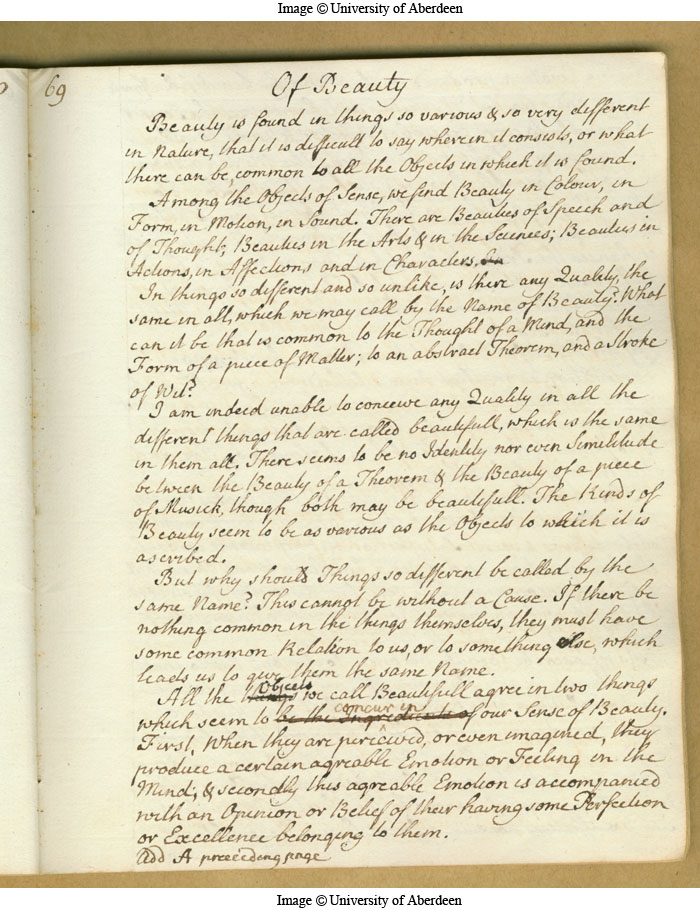 Image © University of Aberdeen
69
Of Beauty
Beauty is found in things so various & so very different
in Nature, that it is difficult to say wherein it consists, or what
there can be, common to all the Objects in which it is found.
Among the Objects of Sense, we find Beauty in Colour, in
Form, in Motion, in Sound. There are Beauties of Speech and
of Thought; Beauties in the Arts & in the Sciences; Beauties in
Actions, in Affections and in Characters. In
In things so different and so unlike, is there any Quality, the
same in all, which we may call by the Name of Beauty? What
can it be that is common to the Thought of a Mind, and the
Form of a piece of Matter; to an abstract Theorem, and a Stroke
of Wit?
I am indeed unable to conceive any Quality in all the
different things that are called beautifull, which is the same
in them all. There seems to be no Identity nor even Similitude
between the Beauty of a Theorem & the Beauty of a piece
of Musick, though both may be beautifull. The Kinds of
Beauty seem to be as various as the Objects to which it is
ascribed.
But why should Things so different be called by the
same Name? This cannot be without a Cause. If there be
nothing common in the things themselves, they must have
some common Relation to us, or to something else, which
leads us to give them the same Name.
Objects
All the things we call Beautifull agree in two things
concur in
which seem to be the Ingredients of our Sense of Beauty.
First, When they are perceived, or even imagined, they
produce a certain agreable Emotion or Feeling in the
Mind; & secondly this agreable Emotion is accompanied
with an Opinion or Belief of their having some Perfection
or Excellence belonging to them.
add A preceeding page
Image © University of Aberdeen